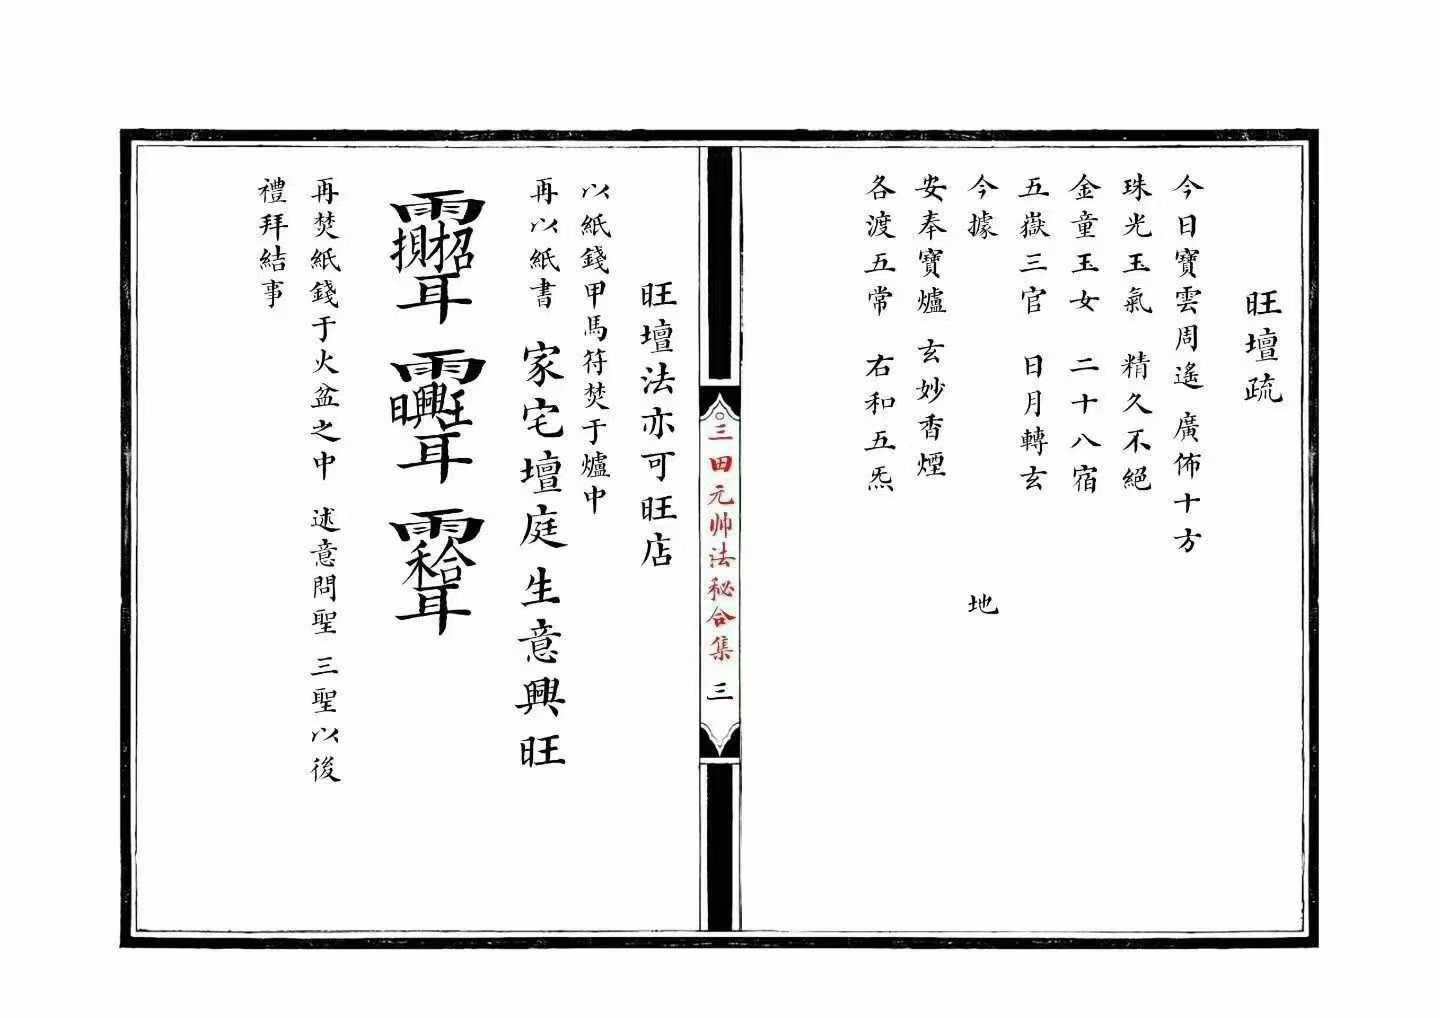 旺壇疏
今日寶雲周遙 廣佈十方
珠光玉氣 精久不絕
金童玉女 二十八宿
五嶽三官 日月轉玄
今據 地
安奉寶爐 玄妙香煙
各渡五常 右和五炁
三田元帅法秘合集 三
旺壇法亦可旺店
以紙錢甲馬符焚于爐中
再以紙書 家宅壇庭生意興旺
再焚紙錢于火盆之中 述意問聖 三聖以後
禮拜結事